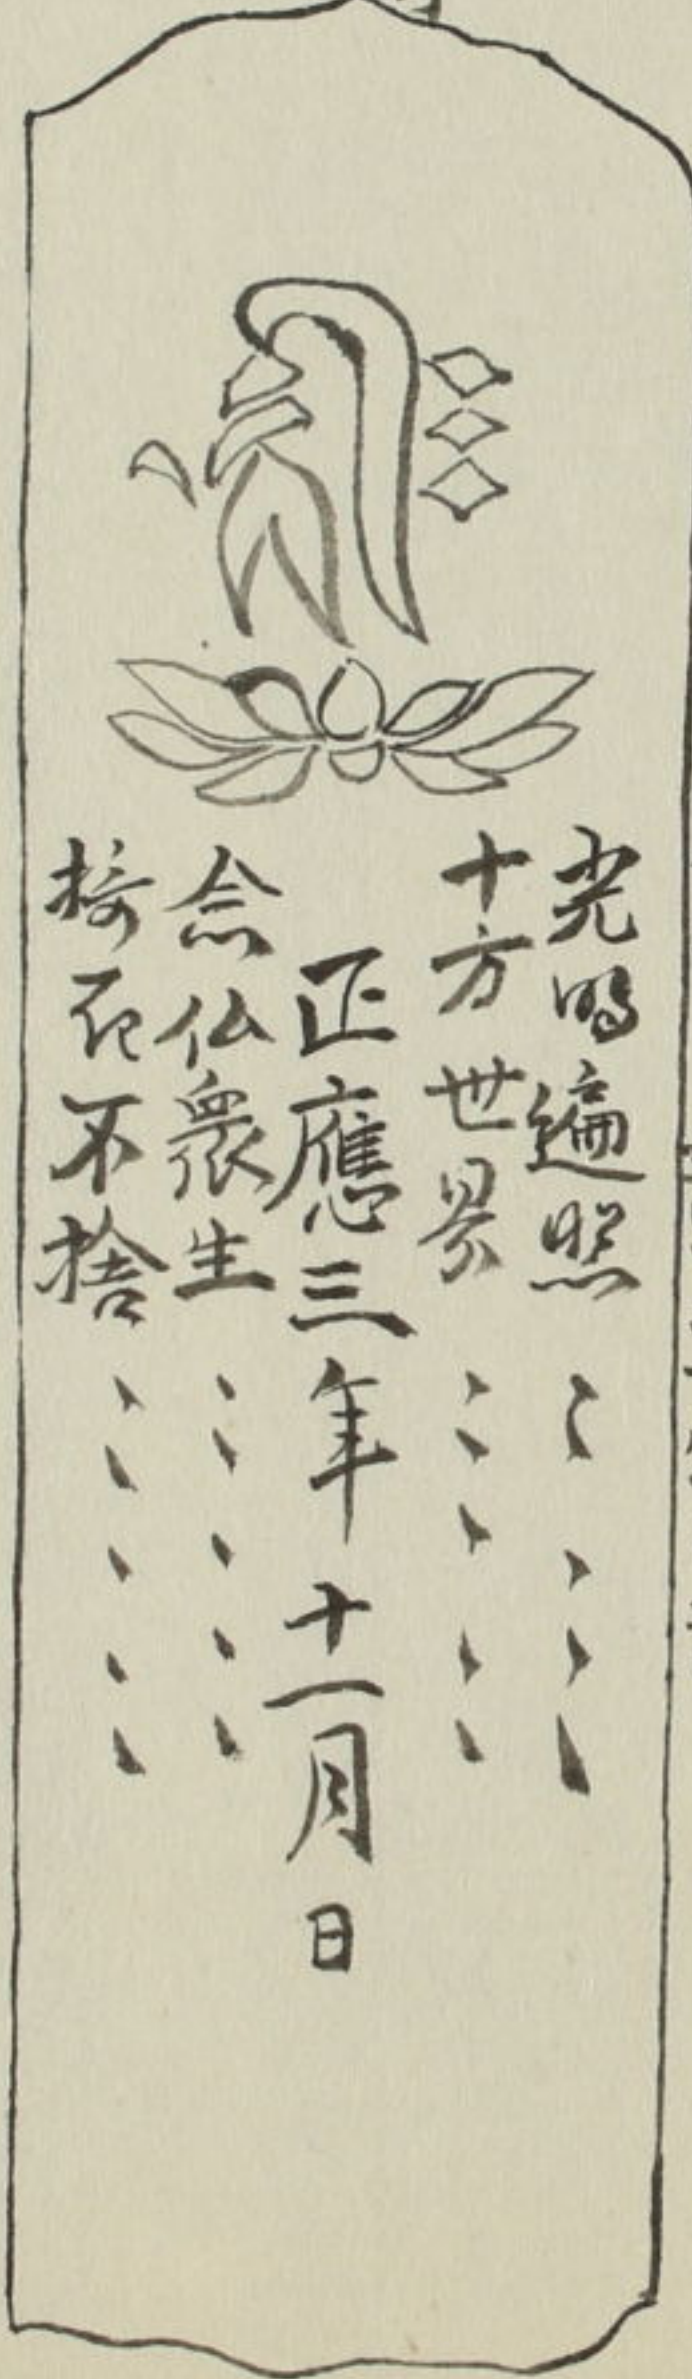 光明遍照
十方世界
正應三年十一月日
念仏衆生
接取不捨